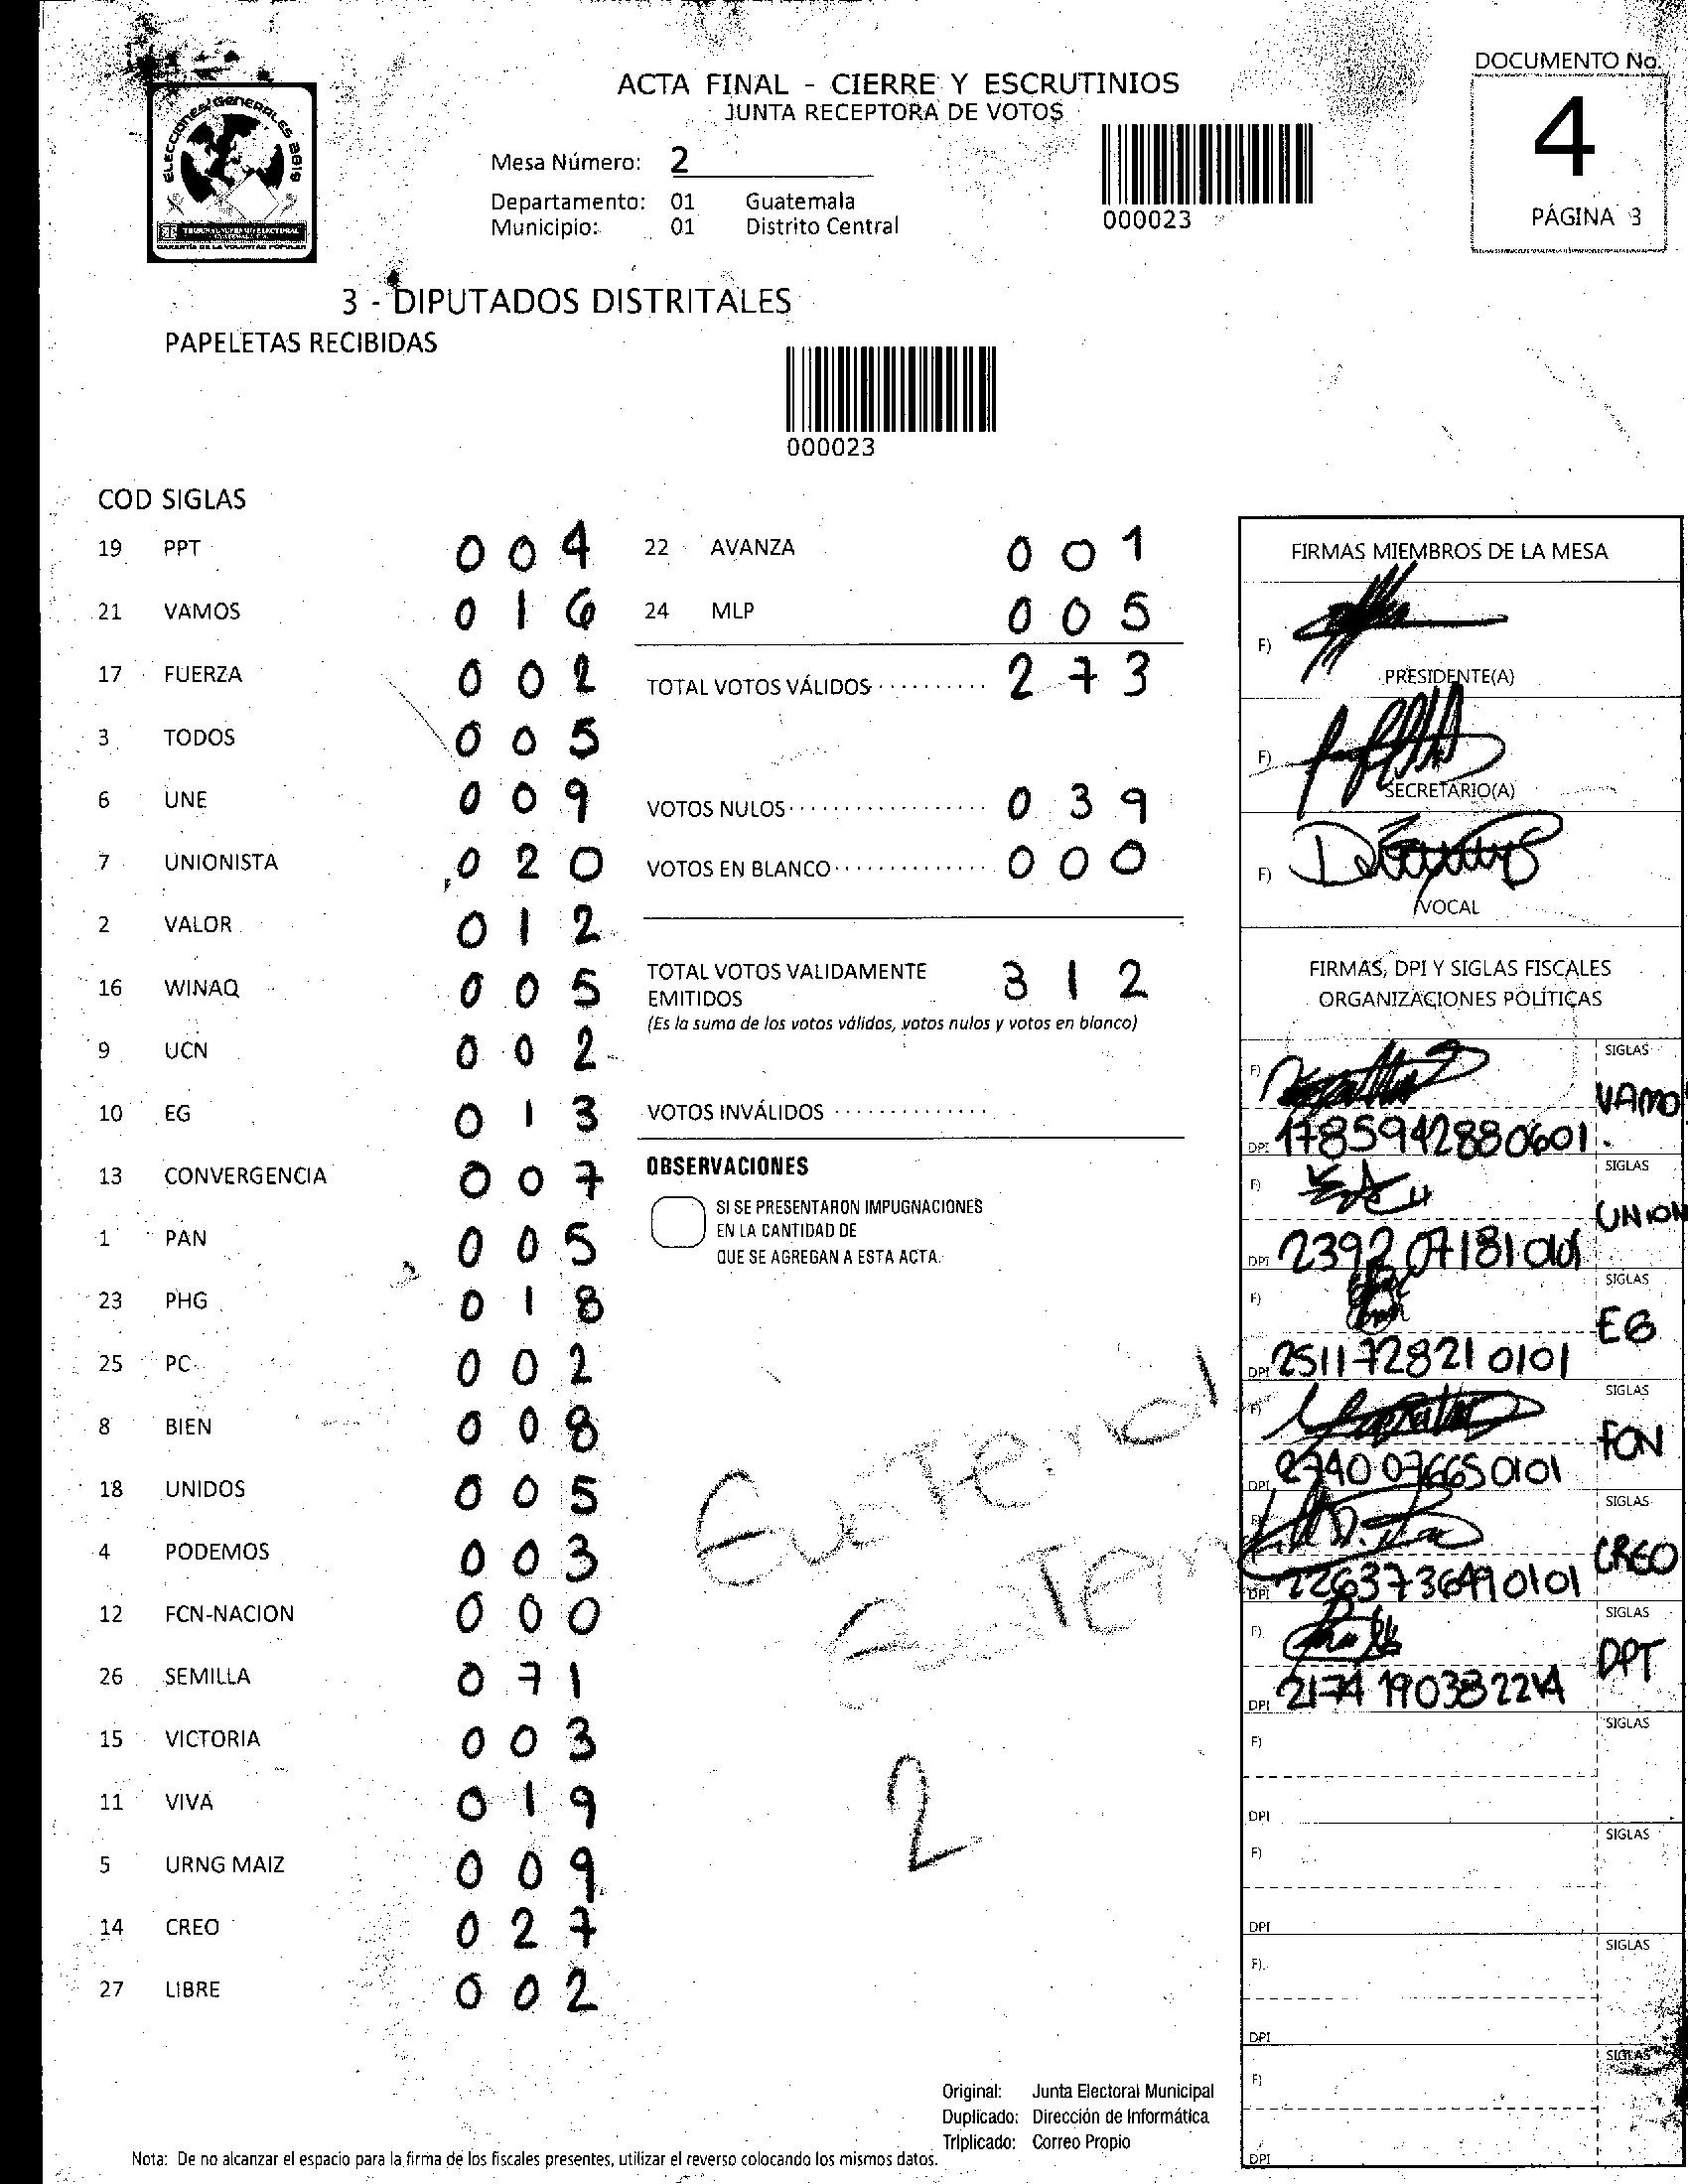 DOCUMENTO No.
4
PÁGINA 3
ACTA FINAL - CIERRE Y ESCRUTINIOS
JUNTA RECEPTORA DE VOTOS
ELECCIONES GENERALES 2019
Mesa Número: 2
Departamento: 01 Guatemala
Municipio: 01 Distrito Central
000023
3 - DIPUTADOS DISTRITALES
PAPELETAS RECIBIDAS
000023
COD SIGLAS
19 PPT 0 0 4
21 VAMOS 0 1 6
17 FUERZA 0 0 2
3 TODOS 0 0 5
6 UNE 0 0 9
7 UNIONISTA 0 2 0
2 VALOR 0 1 2
16 WINAQ 0 0 5
9 UCN 0 0 2
10 EG 0 1 3
13 CONVERGENCIA 0 0 7
1 PAN 0 0 5
23 PHG 0 1 8
25 PC 0 0 2
8 BIEN 0 0 8
18 UNIDOS 0 0 5
4 PODEMOS 0 0 3
12 FCN-NACION 0 0 0
26 SEMILLA 0 7 1
15 VICTORIA 0 0 3
11 VIVA 0 1 9
5 URNG MAIZ 0 0 9
14 CREO 0 2 7
27 LIBRE 0 0 2
22 AVANZA 0 0 1
24 MLP 0 0 5
TOTAL VOTOS VÁLIDOS 2 7 3
VOTOS NULOS 0 3 9
VOTOS EN BLANCO 0 0 0
TOTAL VOTOS VALIDAMENTE
EMITIDOS 3 1 2
(Es la suma de los votos válidos, votos nulos y votos en blanco)
VOTOS INVÁLIDOS
OBSERVACIONES
SI SE PRESENTARON IMPUGNACIONES
EN LA CANTIDAD DE
QUE SE AGREGAN A ESTA ACTA.
2
FIRMAS MIEMBROS DE LA MESA
F)
PRESIDENTE(A)
F)
SECRETARIO(A)
F)
VOCAL
FIRMAS, DPI Y SIGLAS FISCALES
ORGANIZACIONES POLÍTICAS
F) SIGLAS
VAMO
DPI 1785942880601
F) SIGLAS
UNION
DPI
F) SIGLAS
EG
DPI 2511728210101
F) SIGLAS
FCN
DPI
F) SIGLAS
CREO
DPI
F) SIGLAS
DPT
DPI
F) SIGLAS
DPI
F) SIGLAS
DPI
F) SIGLAS
DPI
F) SIGLAS
DPI
Original: Junta Electoral Municipal
Duplicado: Dirección de Informática
Triplicado: Correo Propio
Nota: De no alcanzar el espacio para la firma de los fiscales presentes, utilizar el reverso colocando los mismos datos.